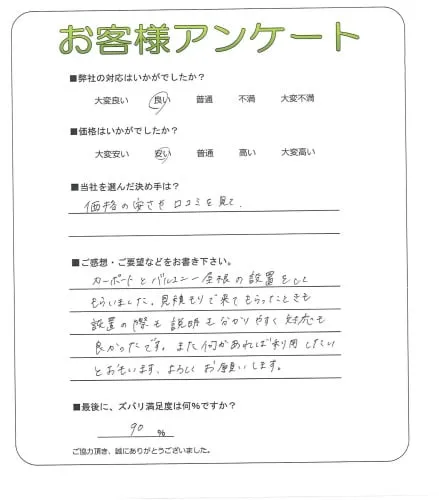 お客様アンケート
■弊社の対応はいかがでしたか?
大変良い 良い 普通 不満 大変不満
■価格はいかがでしたか?
大変安い 安い 普通 高い 大変高い
■当社を選んだ決め手は?
価格の安さを口コミを見て.
■ご感想・ご要望などをお書き下さい。
カーポートとバルコニー屋根の設置をして
もらいました。見積もりで来てもらったときも
設置の際も説明も分かりやすく対応も
良かったです。また何かあれば利用したい
とおもいます、よろしくお願いします。
■最後に、ズバリ満足度は何%ですか?
90 %
ご協力頂き、誠にありがとうございました。